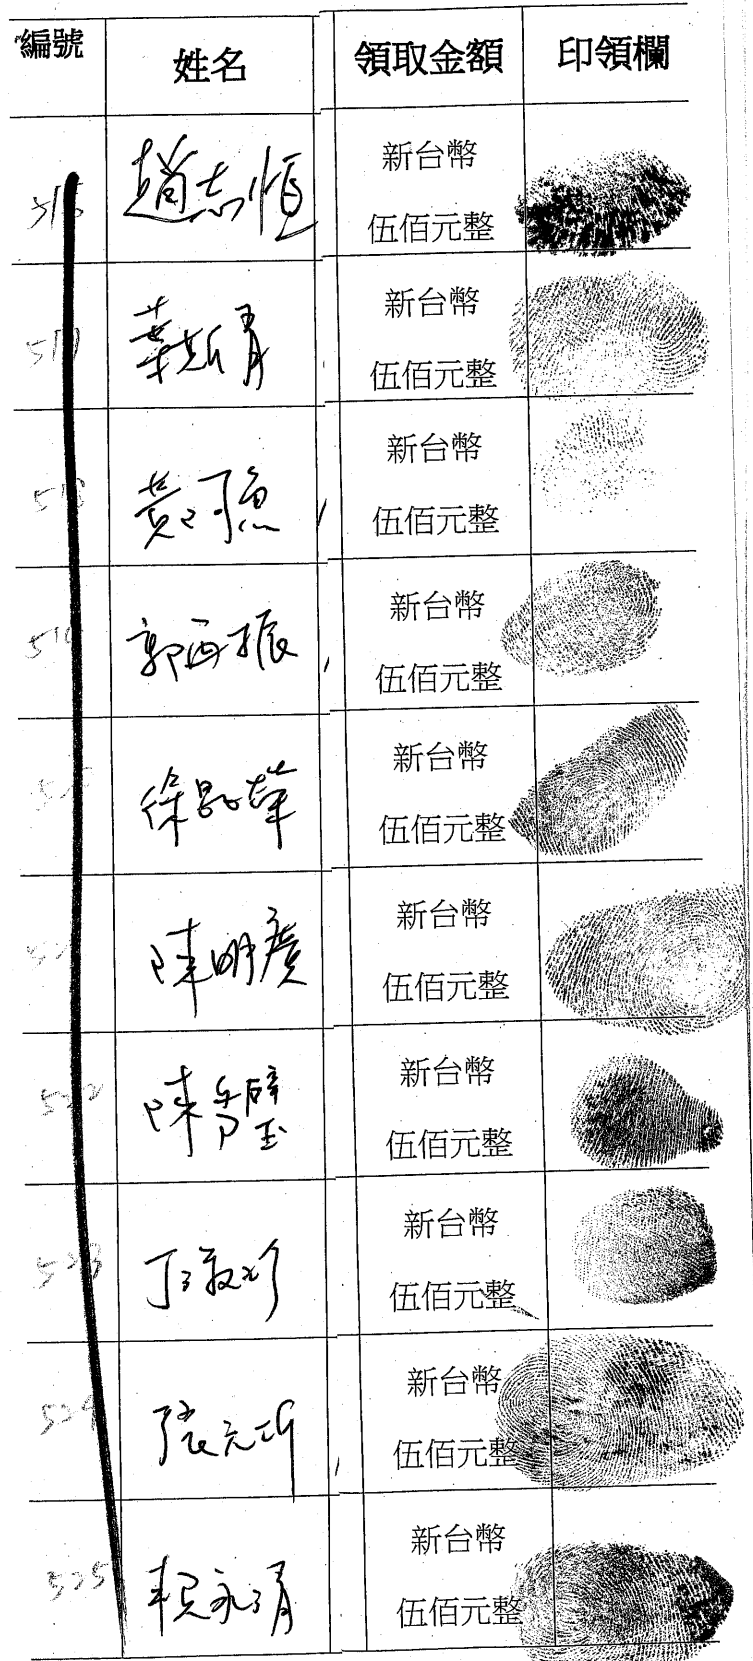 編號 姓名 領取金額 印領欄
516 趙志恒 新台幣
伍佰元整
517 葉斯青 新台幣
伍佰元整
518 新台幣
伍佰元整
519 郭再振 新台幣
伍佰元整
新台幣
伍佰元整
陳明廣 新台幣
伍佰元整
522 陳秀璧 新台幣
伍佰元整
523 新台幣
伍佰元整
524 張元 新台幣
伍佰元整
525 賴永清 新台幣
伍佰元整